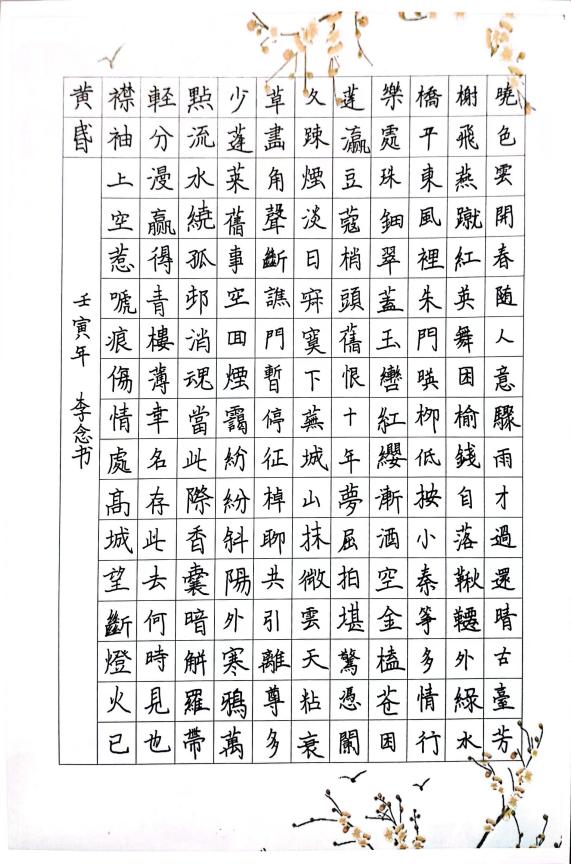 曉色雲開春随人意驟雨才過還晴古臺芳
榭飛燕蹴紅英舞困榆錢自落鞦韆外緑水
橋平東風裡朱門暎柳低按小秦筝多情行
樂處珠鈿翠蓋玉轡紅纓漸酒空金榼苍困
蓬瀛豆蔻梢頭舊恨十年夢屈指堪驚憑闌
久踈煙淡日寂寞下蕪城山抹微雲天粘衰
草畫角聲斷譙門暫停征棹聊共引離尊多
少蓬萊舊事空回煙靄紛紛斜陽外寒鴉萬
點流水繞孤邨消魂當此際香囊暗解羅帶
輕分漫贏得青樓薄幸名存此去何時見也
襟袖上空惹嗁痕傷情處高城望斷燈火已
黄昏
壬寅年 李念书